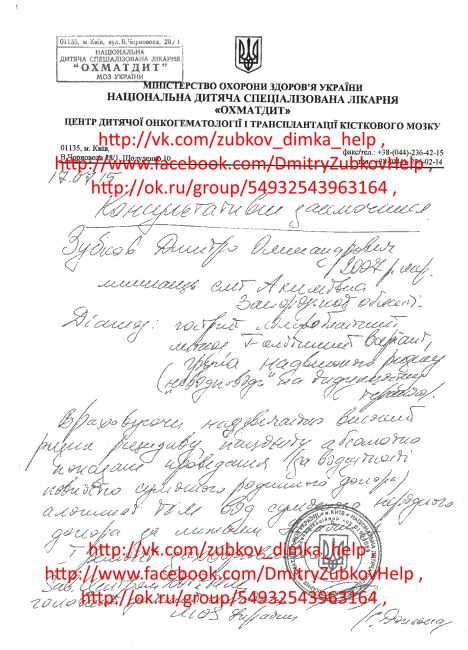 01135, м. Київ, вул. В.Чорновола, 28/1
НАЦІОНАЛЬНА
ДИТЯЧА СПЕЦІАЛІЗОВАНА ЛІКАРНЯ
"ОХМАТДИТ"
МОЗ УКРАЇНИ
МІНІСТЕРСТВО ОХОРОНИ ЗДОРОВ'Я УКРАЇНИ
НАЦІОНАЛЬНА ДИТЯЧА СПЕЦІАЛІЗОВАНА ЛІКАРНЯ
«ОХМАТДИТ»
ЦЕНТР ДИТЯЧОЇ ОНКОГЕМАТОЛОГІЇ І ТРАНСПЛАНТАЦІЇ КІСТКОВОГО МОЗКУ
http://vk.com/zubkov_dimka_help ,
01135, м. Київ,
факс/тел.: +38-(044)-236-42-15
В.Чорновола 28/1,
http://www.facebook.com/DmitryZubkovHelp ,
17.07.15
http://ok.ru/group/54932543963164 ,
Консультативне заключення.
Зубков Дмитро Олександрович
2007 р. нар.
мешканець смт Акимівка
Запорізької області.
Діагноз: гострий лімфобластний
лейкоз
варіант,
група надвисокого ризику
на
Враховуючи надзвичайно високий
ризик рецидиву, пацієнту абсолютно
показано проведення (за відсутності
повністю сумісного родинного донора)
від сумісного народного
донора за
http://vk.com/zubkov_dimka_help-
http://www.facebook.com/DmitryZubkovHelp ,
http://ok.ru/group/54932543963164 ,
МОЗ України